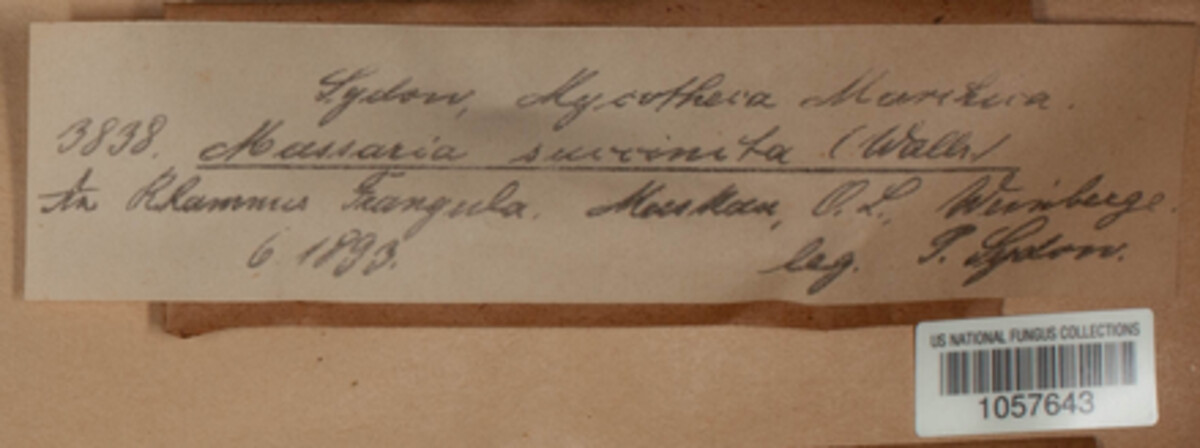 Sydow, Mycotheca Marchica.
3838. Massaria succinita (Wallr.)
An Rhamnus Frangula. Muskau, O. L., Weinberge.
6 1893. leg. P. Sydow.
US NATIONAL FUNGUS COLLECTIONS
1057643